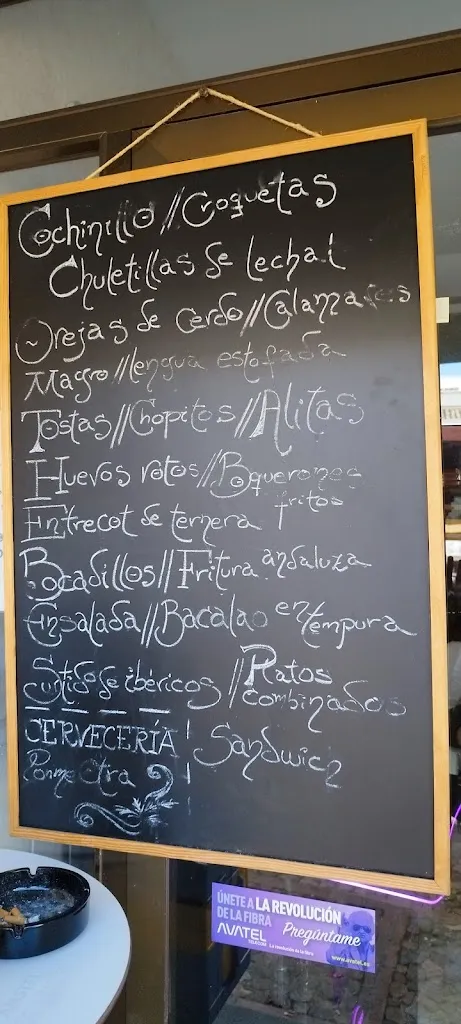 Cochinillo // Croquetas
Chuletillas de lechal
Orejas de Cerdo // Calamares
Magro // lengua estofada
Tostas // Chopitos // Alitas
Huevos rotos // Boquerones
fritos
Entrecot de ternera
Bocadillos // Fritura andaluza
Ensalada // Bacalao en tempura
Stido de ibéricos // Platos
combinados
CERVECERÍA Sandwich
Ponme Otra
ÚNETE A LA REVOLUCIÓN
DE LA FIBRA Pregúntame
AVATEL
TELECOM La revolución de la fibra
www.avatel.es